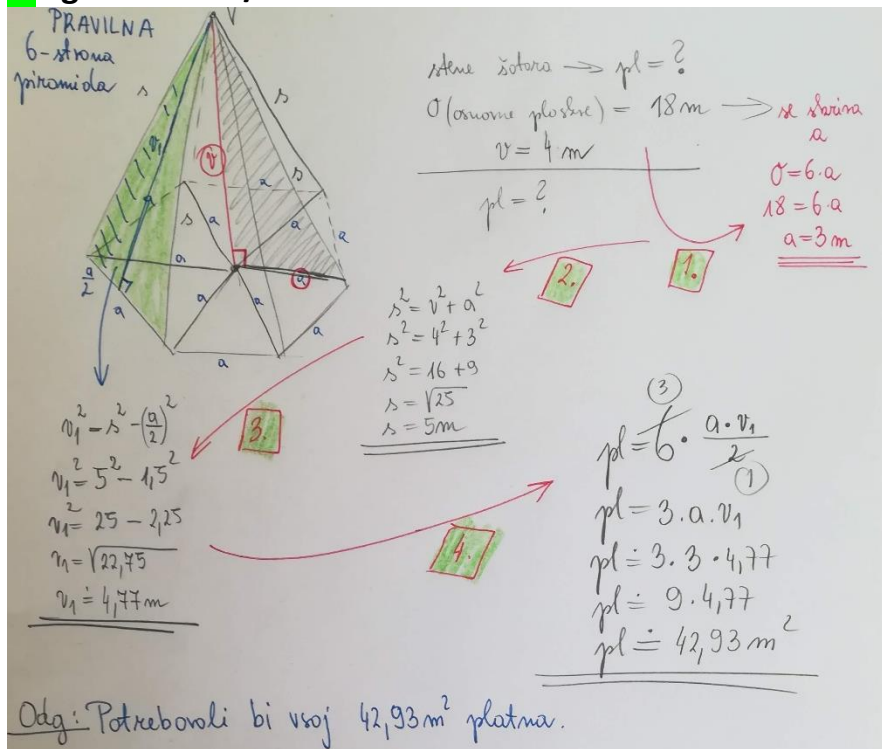 PRAVILNA
6-strana
piramida
V
s
s
s
s
v₁
v
a
a
a
a
a
a
a
a
a
a
a
a/2
stene šotora → pl = ?
O (osnovne ploskve) = 18 m → se skriva
a
v = 4 m
pl = ?
O = 6·a
18 = 6·a
a = 3 m
1.
2.
s² = v² + a²
s² = 4² + 3²
s² = 16 + 9
s = √25
s = 5m
3.
v₁² = s² - (a/2)²
v₁² = 5² - 1,5²
v₁² = 25 - 2,25
v₁ = √22,75
v₁ ≐ 4,77 m
4.
3
pl = 6 · a·v₁/2
1
pl = 3.a.v₁
pl ≐ 3.3·4,77
pl ≐ 9.4,77
pl ≐ 42,93 m²
Odg: Potrebovali bi vsaj 42,93 m² platna.